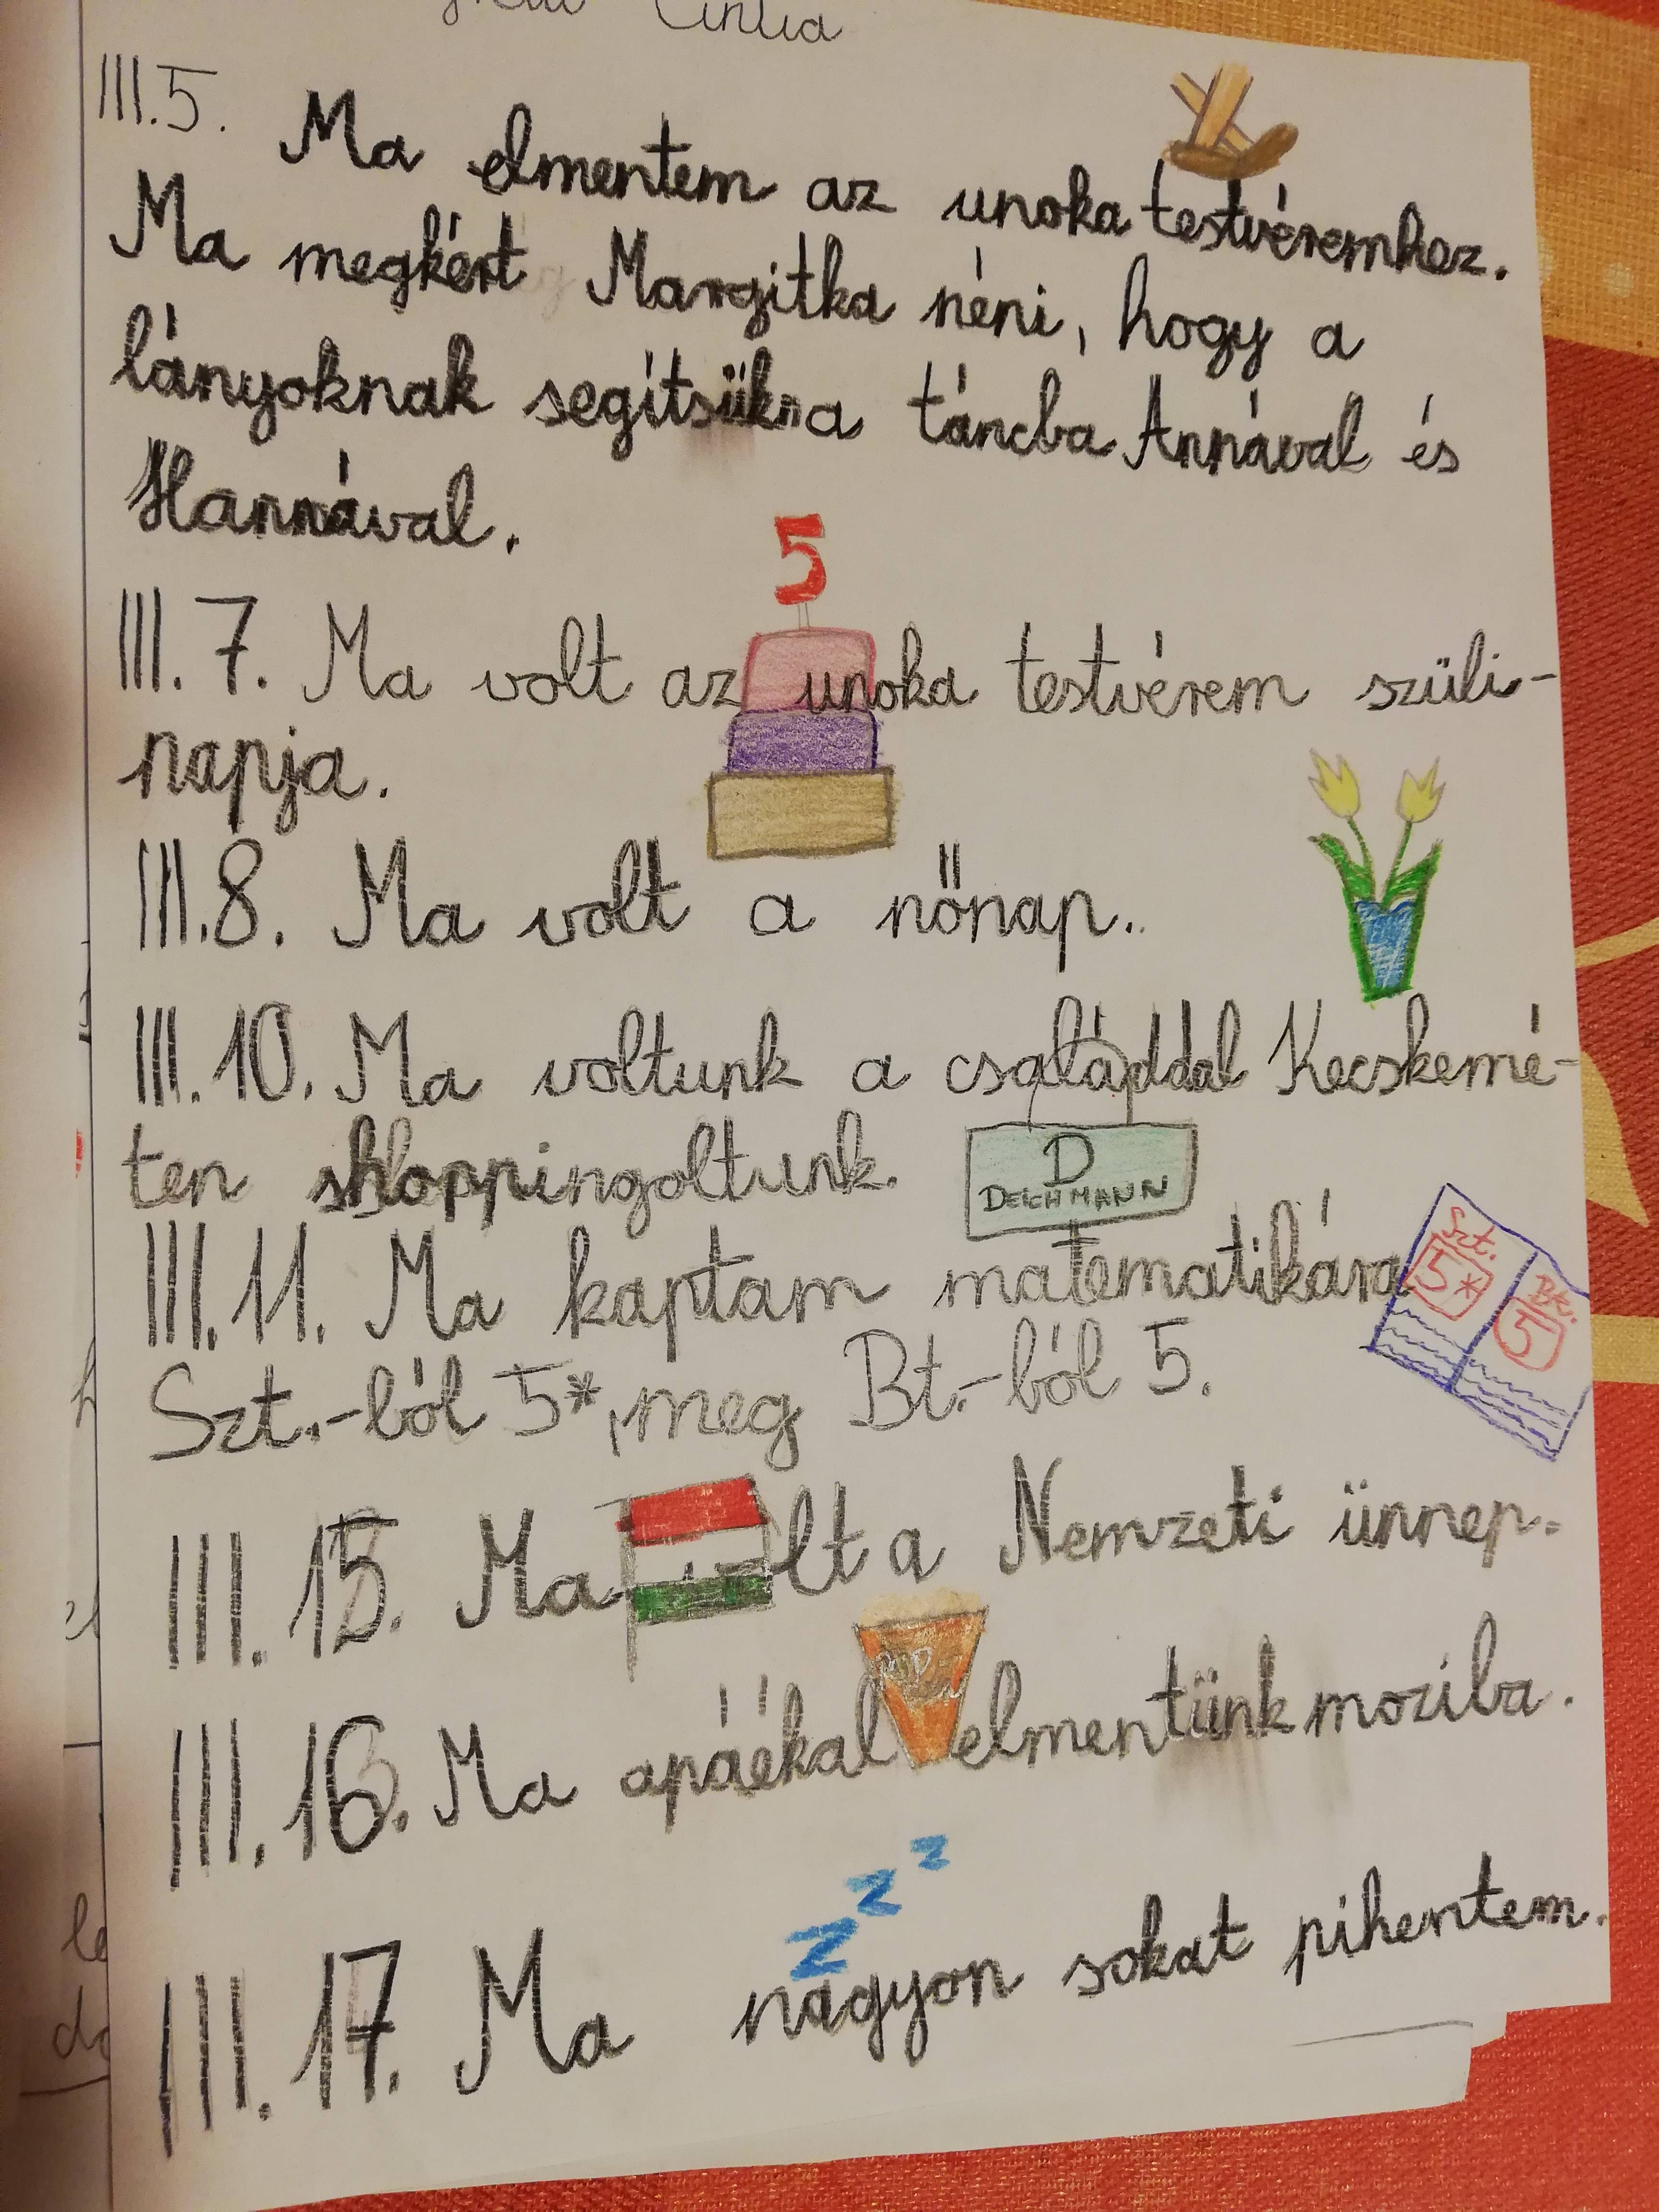 Cintia
III.5. Ma elmentem az unoka testvéremhez.
Ma megkért Margitka néni, hogy a
lányoknak segítsükna táncba Annával és
Hannával.
5
III. 7. Ma volt az unoka testvérem szüli-
napja.
III.8. Ma volt a nőnap.
III. 10. Ma voltunk a családdal Kecskemé-
ten shoppingoltunk.
D
DEICHMANN
III. 11. Ma kaptam matematikára
Szt. 5*
Bt. 5
Szt.-ból 5*, meg Bt.-ból 5.
III. 15. Ma volt a Nemzeti ünnep.
III. 16. Ma apáékal elmentünk moziba.
z z z
III. 17. Ma nagyon sokat pihentem.